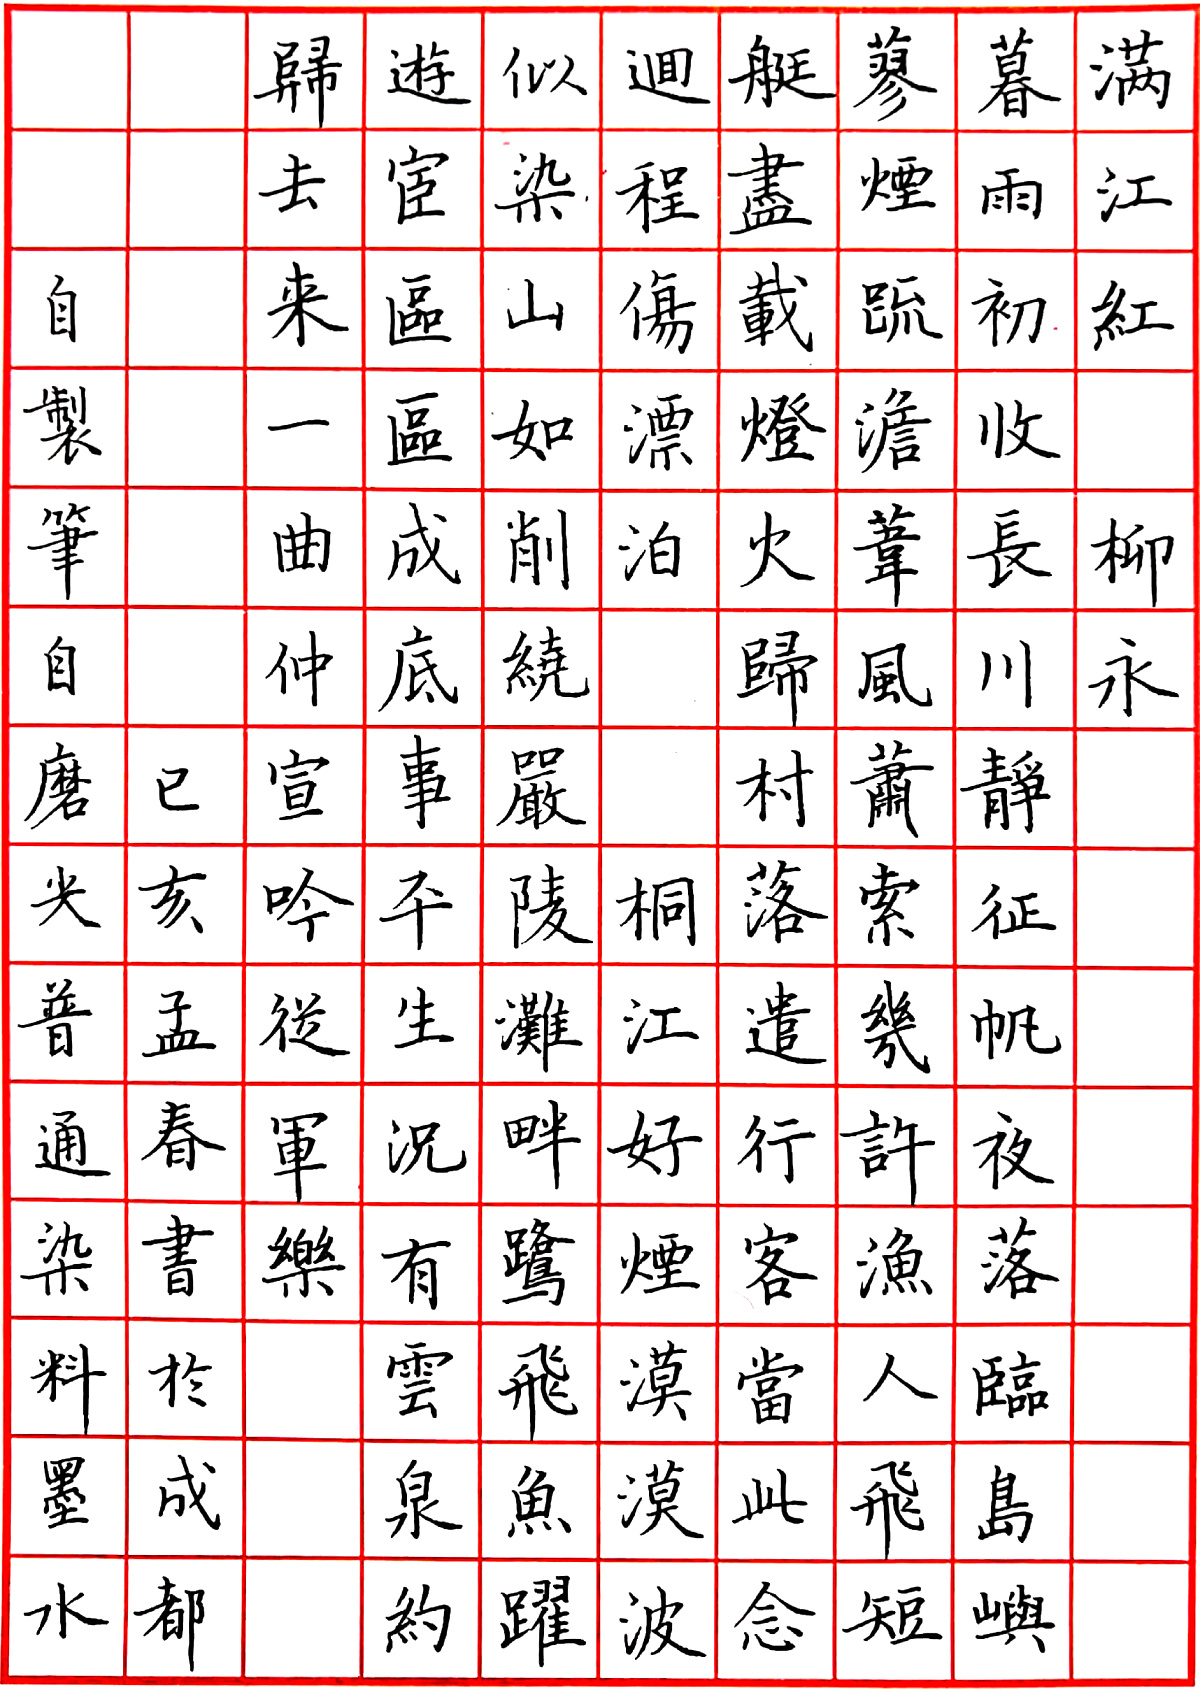 满江紅 柳永
暮雨初收長川靜征帆夜落臨島嶼
蓼煙疏澹葦風蕭索幾許漁人飛短
艇盡載燈火歸村落遣行客當此念
迴程傷漂泊 桐江好煙漠漠波
似染山如削繞嚴陵灘畔鷺飛魚躍
遊宦區區成底事平生況有雲泉約
歸去来一曲仲宣吟從軍樂
已亥孟春書於成都
自製筆自磨尖普通染料墨水